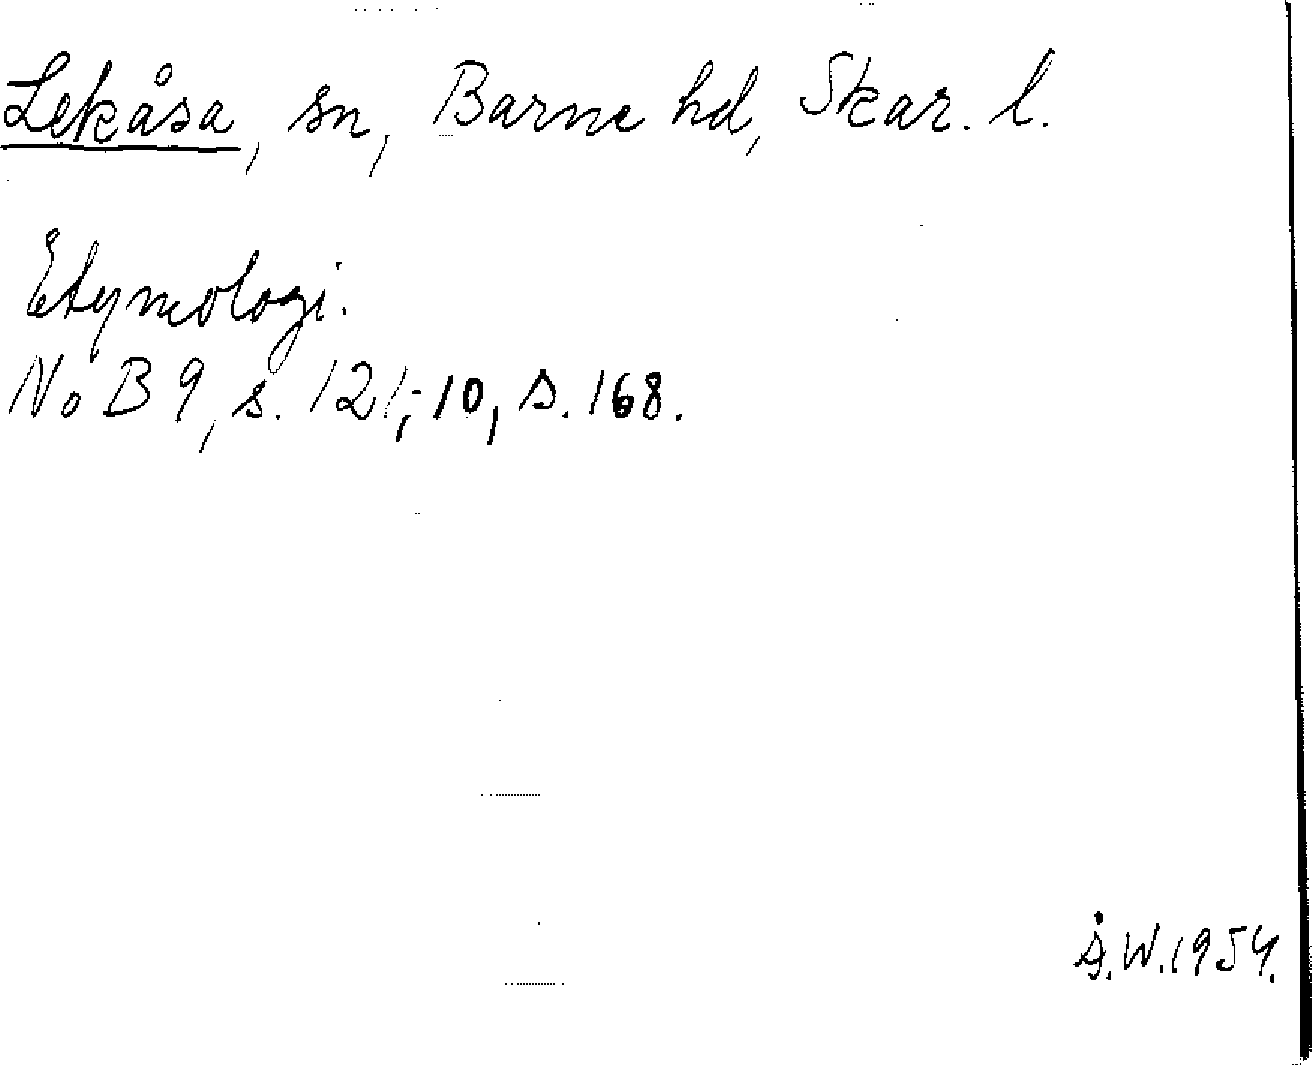 Lekåsa, sn, Barne hd, Skar. l.
Etymologi.
NoB 9, s. 121,- 10, s. 168.
Å.W. 1954.